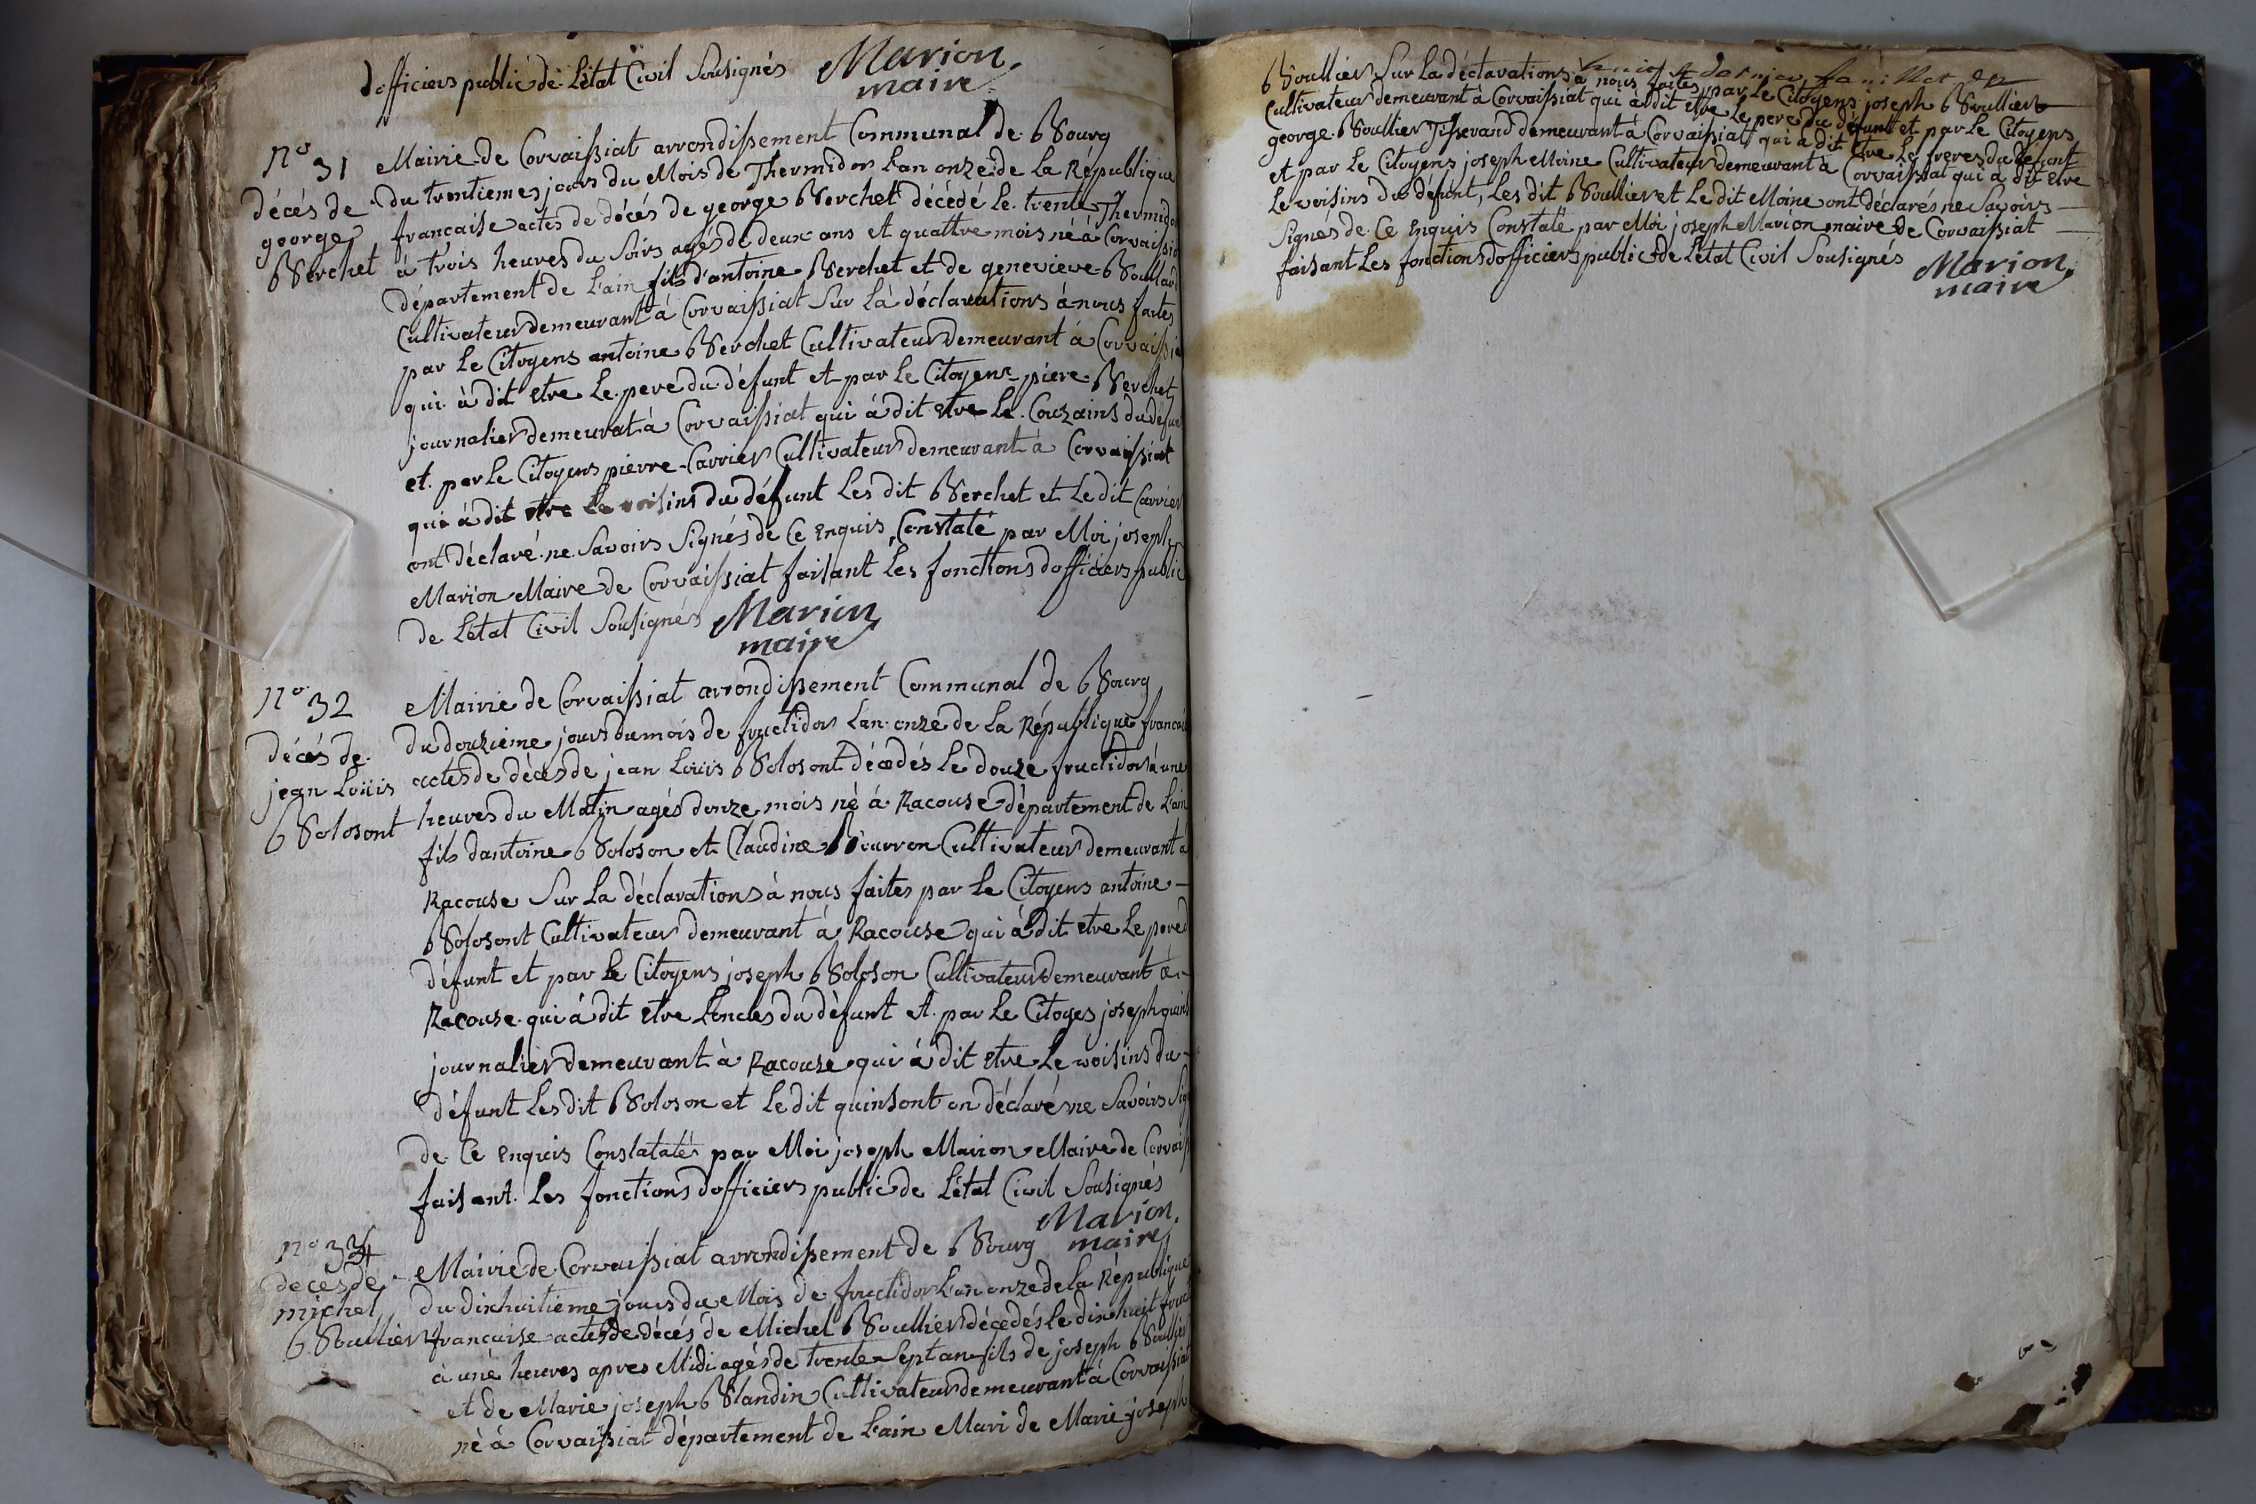 dofficiers public de Létat Civil Sousignés Marion
maire
No 31
décés de
george
Berchet
Mairie de Corvaissiat arrondissement Communal de Bourg
du trentiemes jours du Mois de Thermidor Lan onze de La République
francaise actes de décés de george Berchet décédé Le trente Thermidor
à trois heures du Soirs agés de deux ans et quattre mois né à Corvaissiat
département de Lain fils d'antoine Berchet et de genevieve Boullard
Cultivateur demeurant à Corvaissiat Sur La déclarations à nous faites
par Le Citoyens antoine Berchet Cultivateur demeurant à Corvaissiat
qui à dit etre Le pere du défunt et par Le Citoyens piere Berchet
journalier demeurat à Corvaissiat qui à dit etre Le Couzains du défunt
et par Le Citoyens pierre Carrier Cultivateur demeurant à Corvaissiat
qui à dit etre Le voisins du défunt Les dit Berchet et Le dit Carrier
ont déclaré ne Savoirs Signés de Ce Enquis, Constaté par Moi joseph
Marion Maire de Corvaissiat faisant Les fonctions dofficiers public
de Létat Civil Sousignés Marion
maire
No 32
décés de
jean Loüis
Bolosont
Mairie de Corvaissiat arrondissement Communal de Bourg
du douzieme jours du mois de fructidor Lan onze de La République francai
actes de décés de jean Loüis Bolosont décédés Le douze fructidor à une
heures du Matin agés donze mois né à Racouse département de Lain
fils dantoine Boloson et Claudine Cultivateur demeurant à
Racouse Sur La déclarations à nous faites par Le Citoyens antoine
Bolosont Cultivateur demeurant à Racouse qui à dit etre Le pere d
défunt et par Le Citoyens joseph Boloson Cultivateur demeurant à
Racouse qui à dit etre Loncles du défunt et par Le Citoyes joseph quins
journalier demeurant à Racouse qui à dit etre Le woisins du
défunt Les dit Boloson et Le dit quinsont on déclaré ne Savoirs Sig
de Ce Enquis Constatatés par Moi joseph Marion Maire de Corvaiss
faisant Les fonctions dofficiers public de Létat Civil Sousignés
Marion
maire
No 34
deces de
michel
Boullier
Mairie de Corvaissiat arrondissement de Bourg
du dixhuitieme jours du Mois de fructidor Lan onze de La République
francaise actes de décés de Michel Boullier décédés Le dixhuit fruct
à une heures apres Midi agés de trente Sept an fils de joseph Boullier
et de Marie joseph Blandin Cultivateur demeurant à Corvaissiat
né à Corvaissiat département de Lain Mari de Marie joseph
Boullier Sur La déclarations à nous faites par Le Citoyens joseph Boullier
Cultivateur demeurant à Corvaissiat qui à dit etre Le pere du défunt et par Le Citoyens
george Boullier Tisserand demeurant à Corvaissiat qui à dit etre Le freres du défunt
et par Le Citoyens joseph Moine Cultivateur demeurant à Corvaissiat qui à dit etre
Le voisins du défunt, Les dit Boullier et Le dit Moine ont déclarés ne Savoirs
Signés de Ce Enquis Constaté par Moi joseph Marion maire de Corvaissiat
faisant Les fonctions dofficiers public de Létat Civil Sousignés Marion
maire